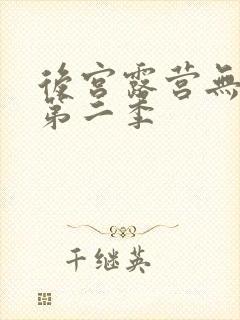 後宫露营無
第二季
干继英